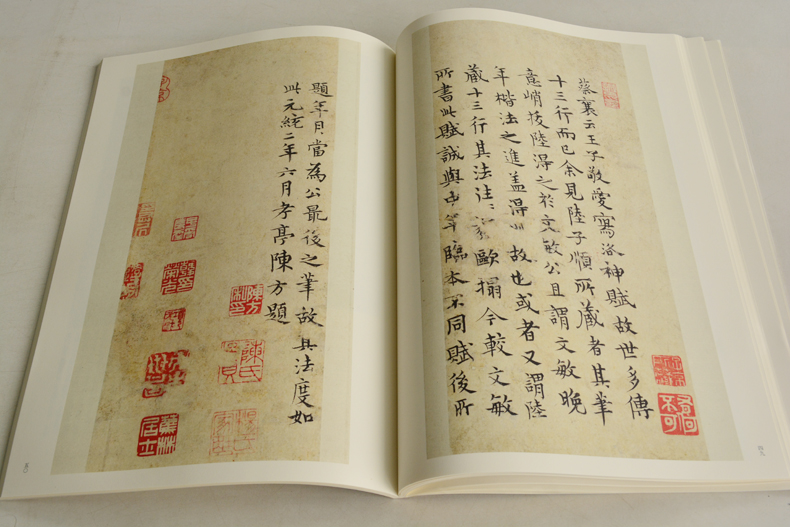 蔡襄云王子敬愛寫洛神賦故世多傳
十三行而已余見陸子順所藏者其筆
意峭拔陸得之於文敏公且謂文敏晚
年楷法之進蓋得此故也或者又謂陸
藏十三行其法往歐搨今較文敏
所書此賦誠與中年臨本不同賦後所
有何不可
題年月當為公最後之筆故其法度如
此元統二年六月孝亭陳方題